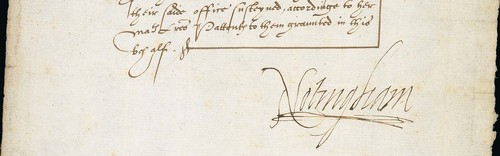 their saide office susteyned, accordinge to her
Ma:ts Pattents to them graunted in this
behalf.
Notingham